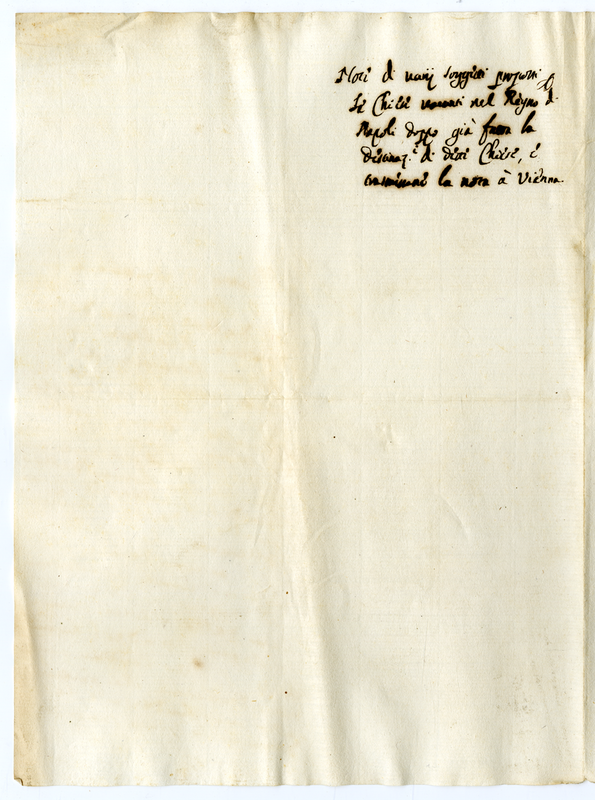 Note di varij soggetti proposti p
le Chiese vacanti nel Regno di
Napoli doppo già fatta la
destinaz.e di dette Chiese, e
trasmessane la nota à Vienna.